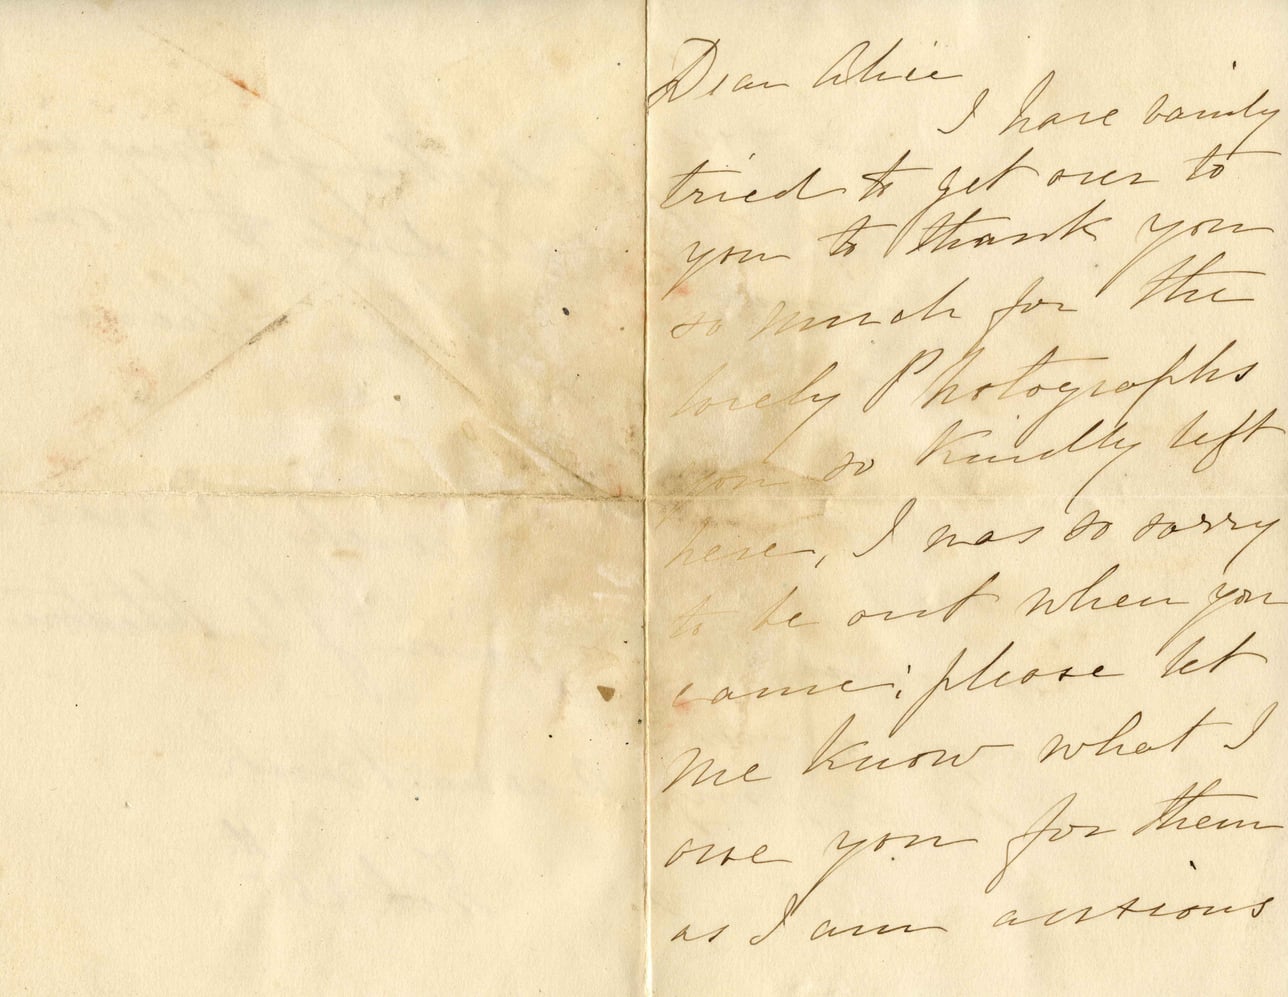 Dear Alice
I have vainly
tried to get over to
you to thank you
so much for the
lovely Photographs
you so kindly left
here, I was so sorry
to be out when you
came; please let
me know what I
owe you for them
as I am anxious